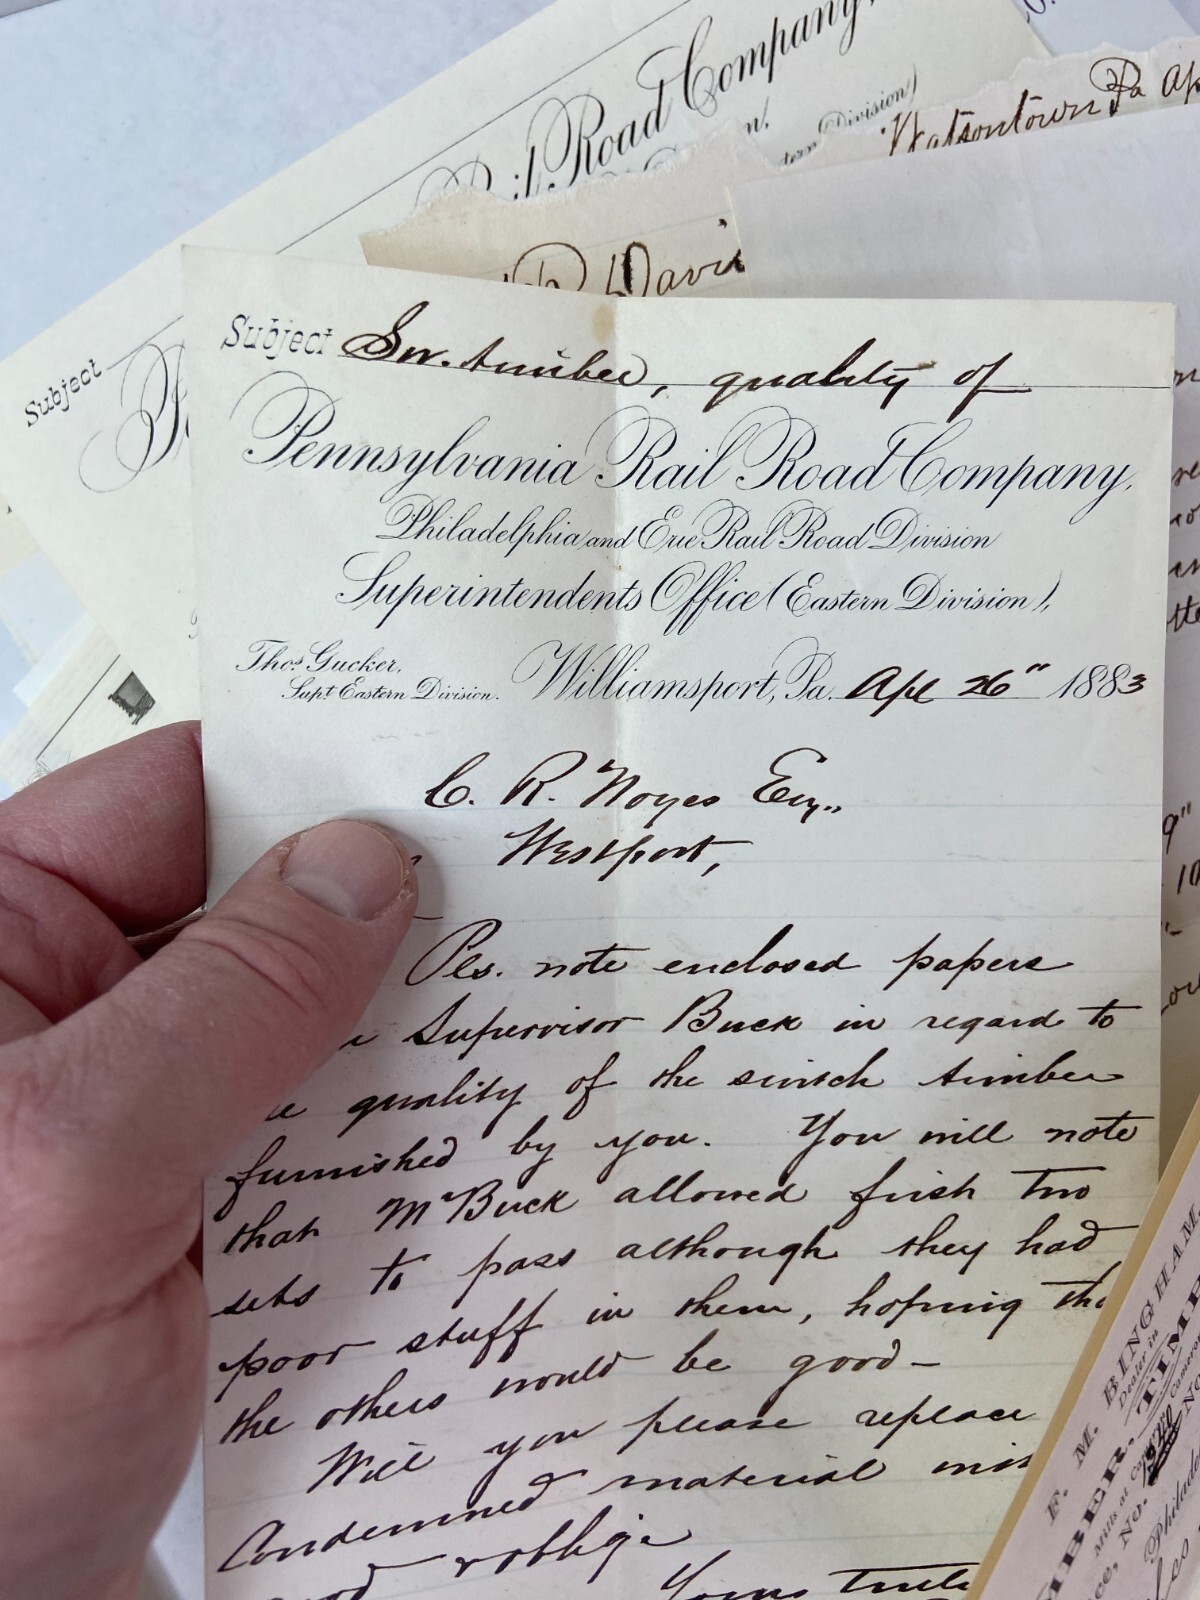 Rail Road Company,
Division)
Watsontown Pa Ap
Davis
Subject
Subject Sw. timber, quality of
Pennsylvania Rail Road Company,
Philadelphia and Erie Rail Road Division
Superintendents Office (Eastern Division),
Thos. Gucker,
Supt Eastern Division.
Williamsport, Pa. Apl 26" 1883
C. R. Noyes Esq.,
Westport,
Pls. note enclosed papers
Supervisor Buck in regard to
quality of the switch timber
furnished by you. You will note
that Mr Buck allowed first two
sets to pass although they had
poor stuff in them, hoping tha
the others would be good—
Will you please replace
Condemned material
oblige
Yours
F. M. BINGHAM,
Dealer in
TIMBER.
Mills at
No.